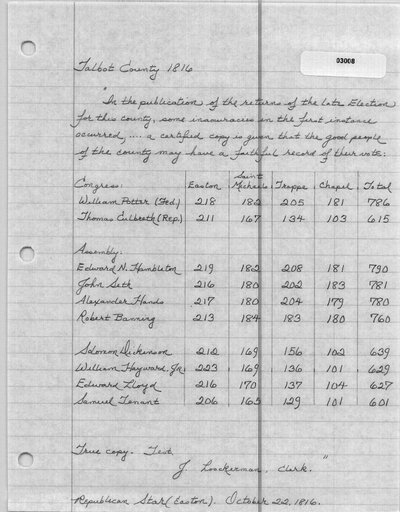 03008
Talbot County 1816
"In the publication of the returns of the late Election
for this county, some inaccuracies in the first instance
ocurred, .... a certified copy is given that the good people
of the county may have a faithful record of their vote:
Congress: Easton Saint Michaels Trappe Chapel Total
William Potter (Fed.) 218 182 205 181 786
Thomas Culbreth (Rep.) 211 167 134 103 615
Assembly:
Edward N. Hambleton 219 182 208 181 790
John Seth 216 180 202 183 781
Alexander Hands 217 180 204 179 780
Robert Banning 213 184 183 180 760
Solomon Dickinson 212 169 156 102 639
William Hayward, Jr. 223 169 136 101 629
Edward Lloyd 216 170 137 104 627
Samuel Tenant 206 165 129 101 601
True copy. Test
J. Loockerman, Clerk."
Republican Star (Easton). October 22, 1816.